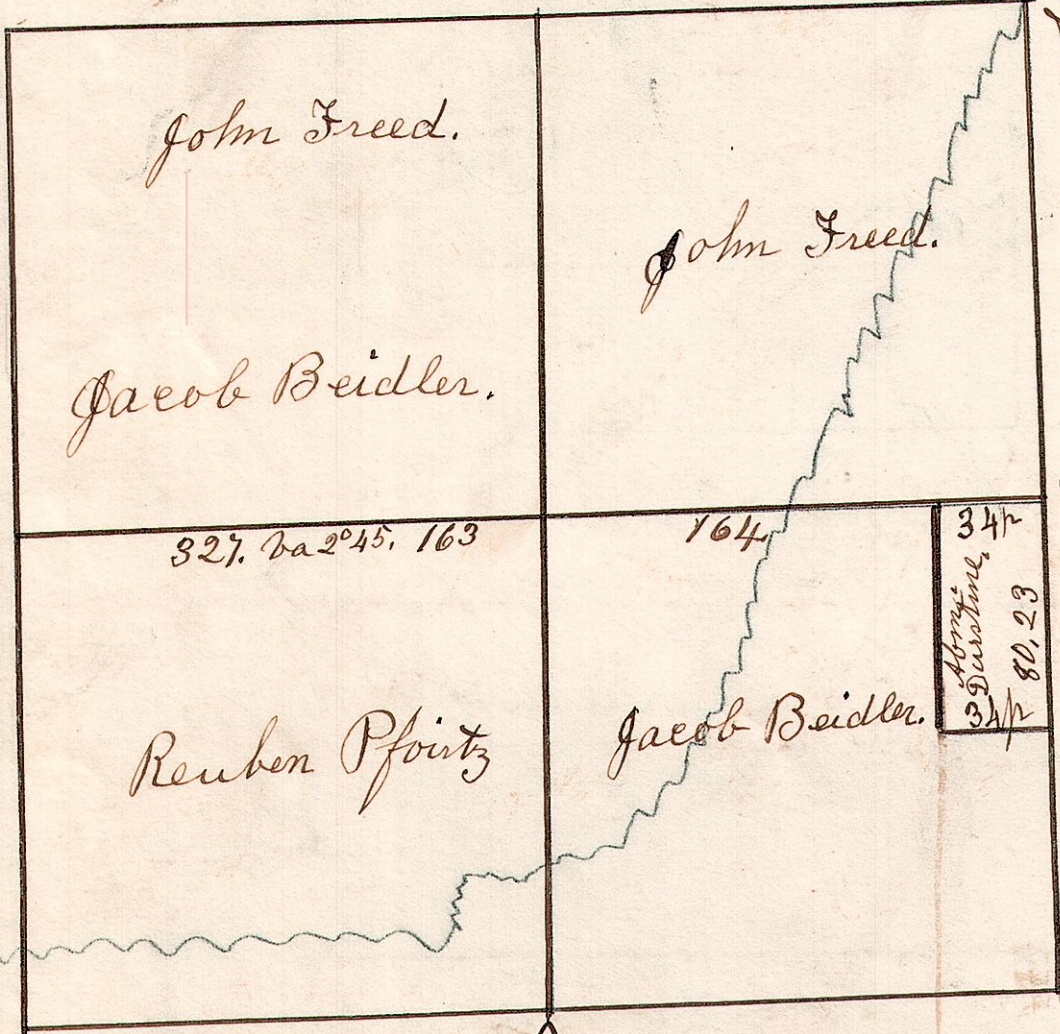 John Freed.
John Freed.
Jacob Beidler.
327. Va 2°45. 163
164
34p
Abm. Durstine.
80,23
34p
Reuben Pfoirtz
Jacob Beidler.